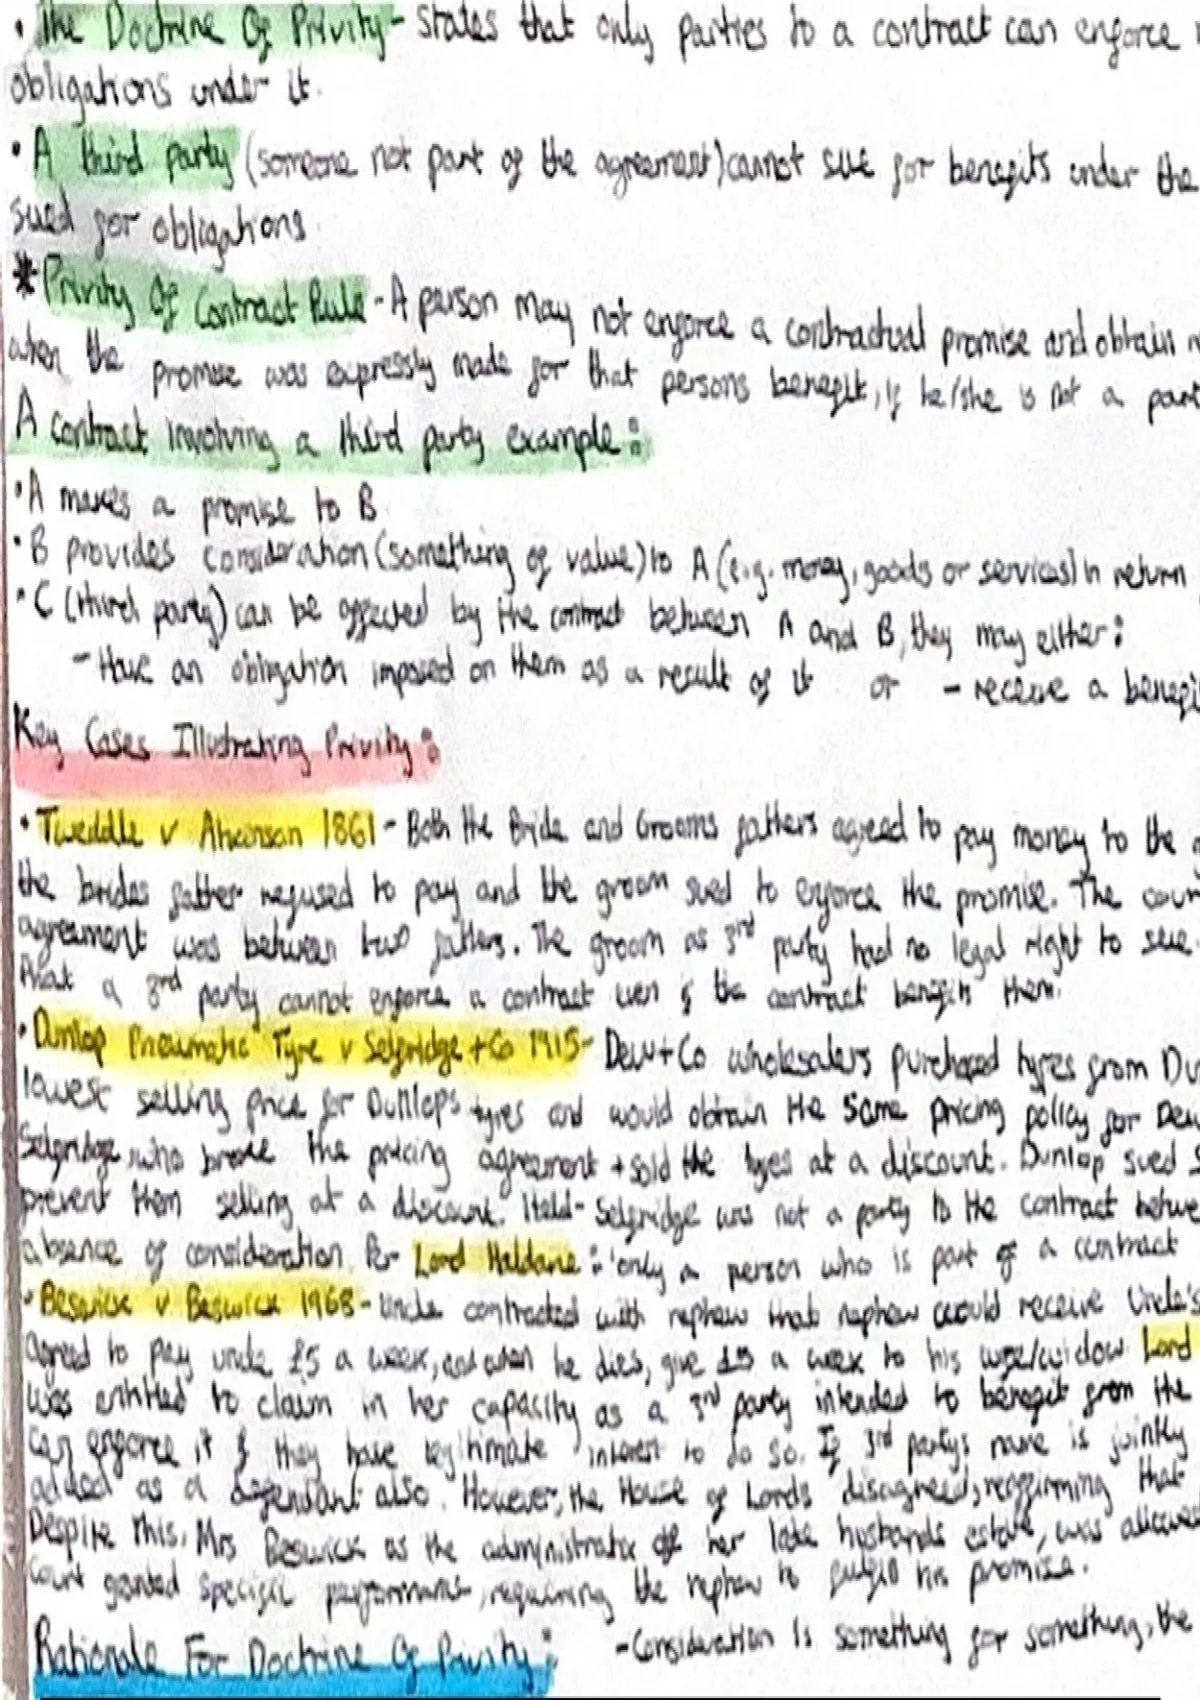 • The Doctrine Of Privity - States that only parties to a contract can enforce
obligations under it.
• A third party (someone not part of the agreement) cannot sue for benefits under the
sued for obligations
* Privity Of Contract Rule - A person may not enforce a contractual promise and obtain
when the promise was expressly made for that persons benefit, if he/she is not a part
A contract involving a third party example:
• A makes a promise to B
• B provides consideration (something of value) to A (e.g. money, goods or services) in return
• C (third party) can be affected by the contract between A and B, they may either:
- Have an obligation imposed on them as a result of it or - receive a benefi
Key Cases Illustrating Privity:
• Tweddle v Atkinson 1861 - Both the Bride and Grooms fathers agreed to pay money to the
the brides father refused to pay and the groom sued to enforce the promise. The cour
agreement was between two fathers. The groom as 3rd party had no legal right to sue.
that a 3rd party cannot enforce a contract even if the contract benefits them.
• Dunlop Pneumatic Tyre v Selfridge + Co 1915 - Dew + Co wholesalers purchased tyres from Du
lowest selling price for Dunlops tyres and would obtain the same pricing policy for Dew
Selfridge who broke the pricing agreement + sold the tyres at a discount. Dunlop sued S
prevent them selling at a discount. Held - Selfridge was not a party to the contract betwe
absence of consideration. Per Lord Haldane: 'only a person who is part of a contract
• Beswick v Beswick 1968 - Uncle contracted with nephew that nephew would receive Uncle's
agreed to pay uncle £5 a week, and when he dies, give £5 a week to his wife/widow. Lord
was entitled to claim in her capacity as a 3rd party intended to benefit from the
can enforce it if they have legitimate interest to do so. If 3rd partys name is jointly
added as a defendant also. However, the House of Lords disagreed, reaffirming that
Despite this, Mrs Beswick as the administrator of her late husbands estate, was allowe
Court granted specific performance, requiring the nephew to fulfil his promise.
Rationale For Doctrine Of Privity: - Consideration is something for something, the